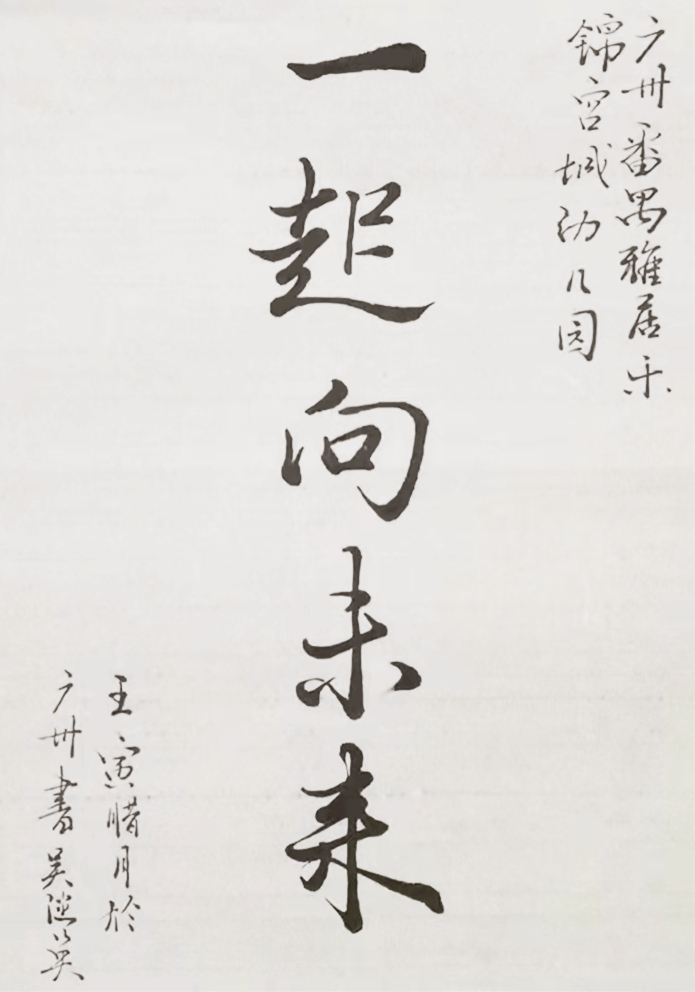 广州番禺雅居乐
锦宫城幼儿园
一起向未来
壬寅腊月於
广州書吴